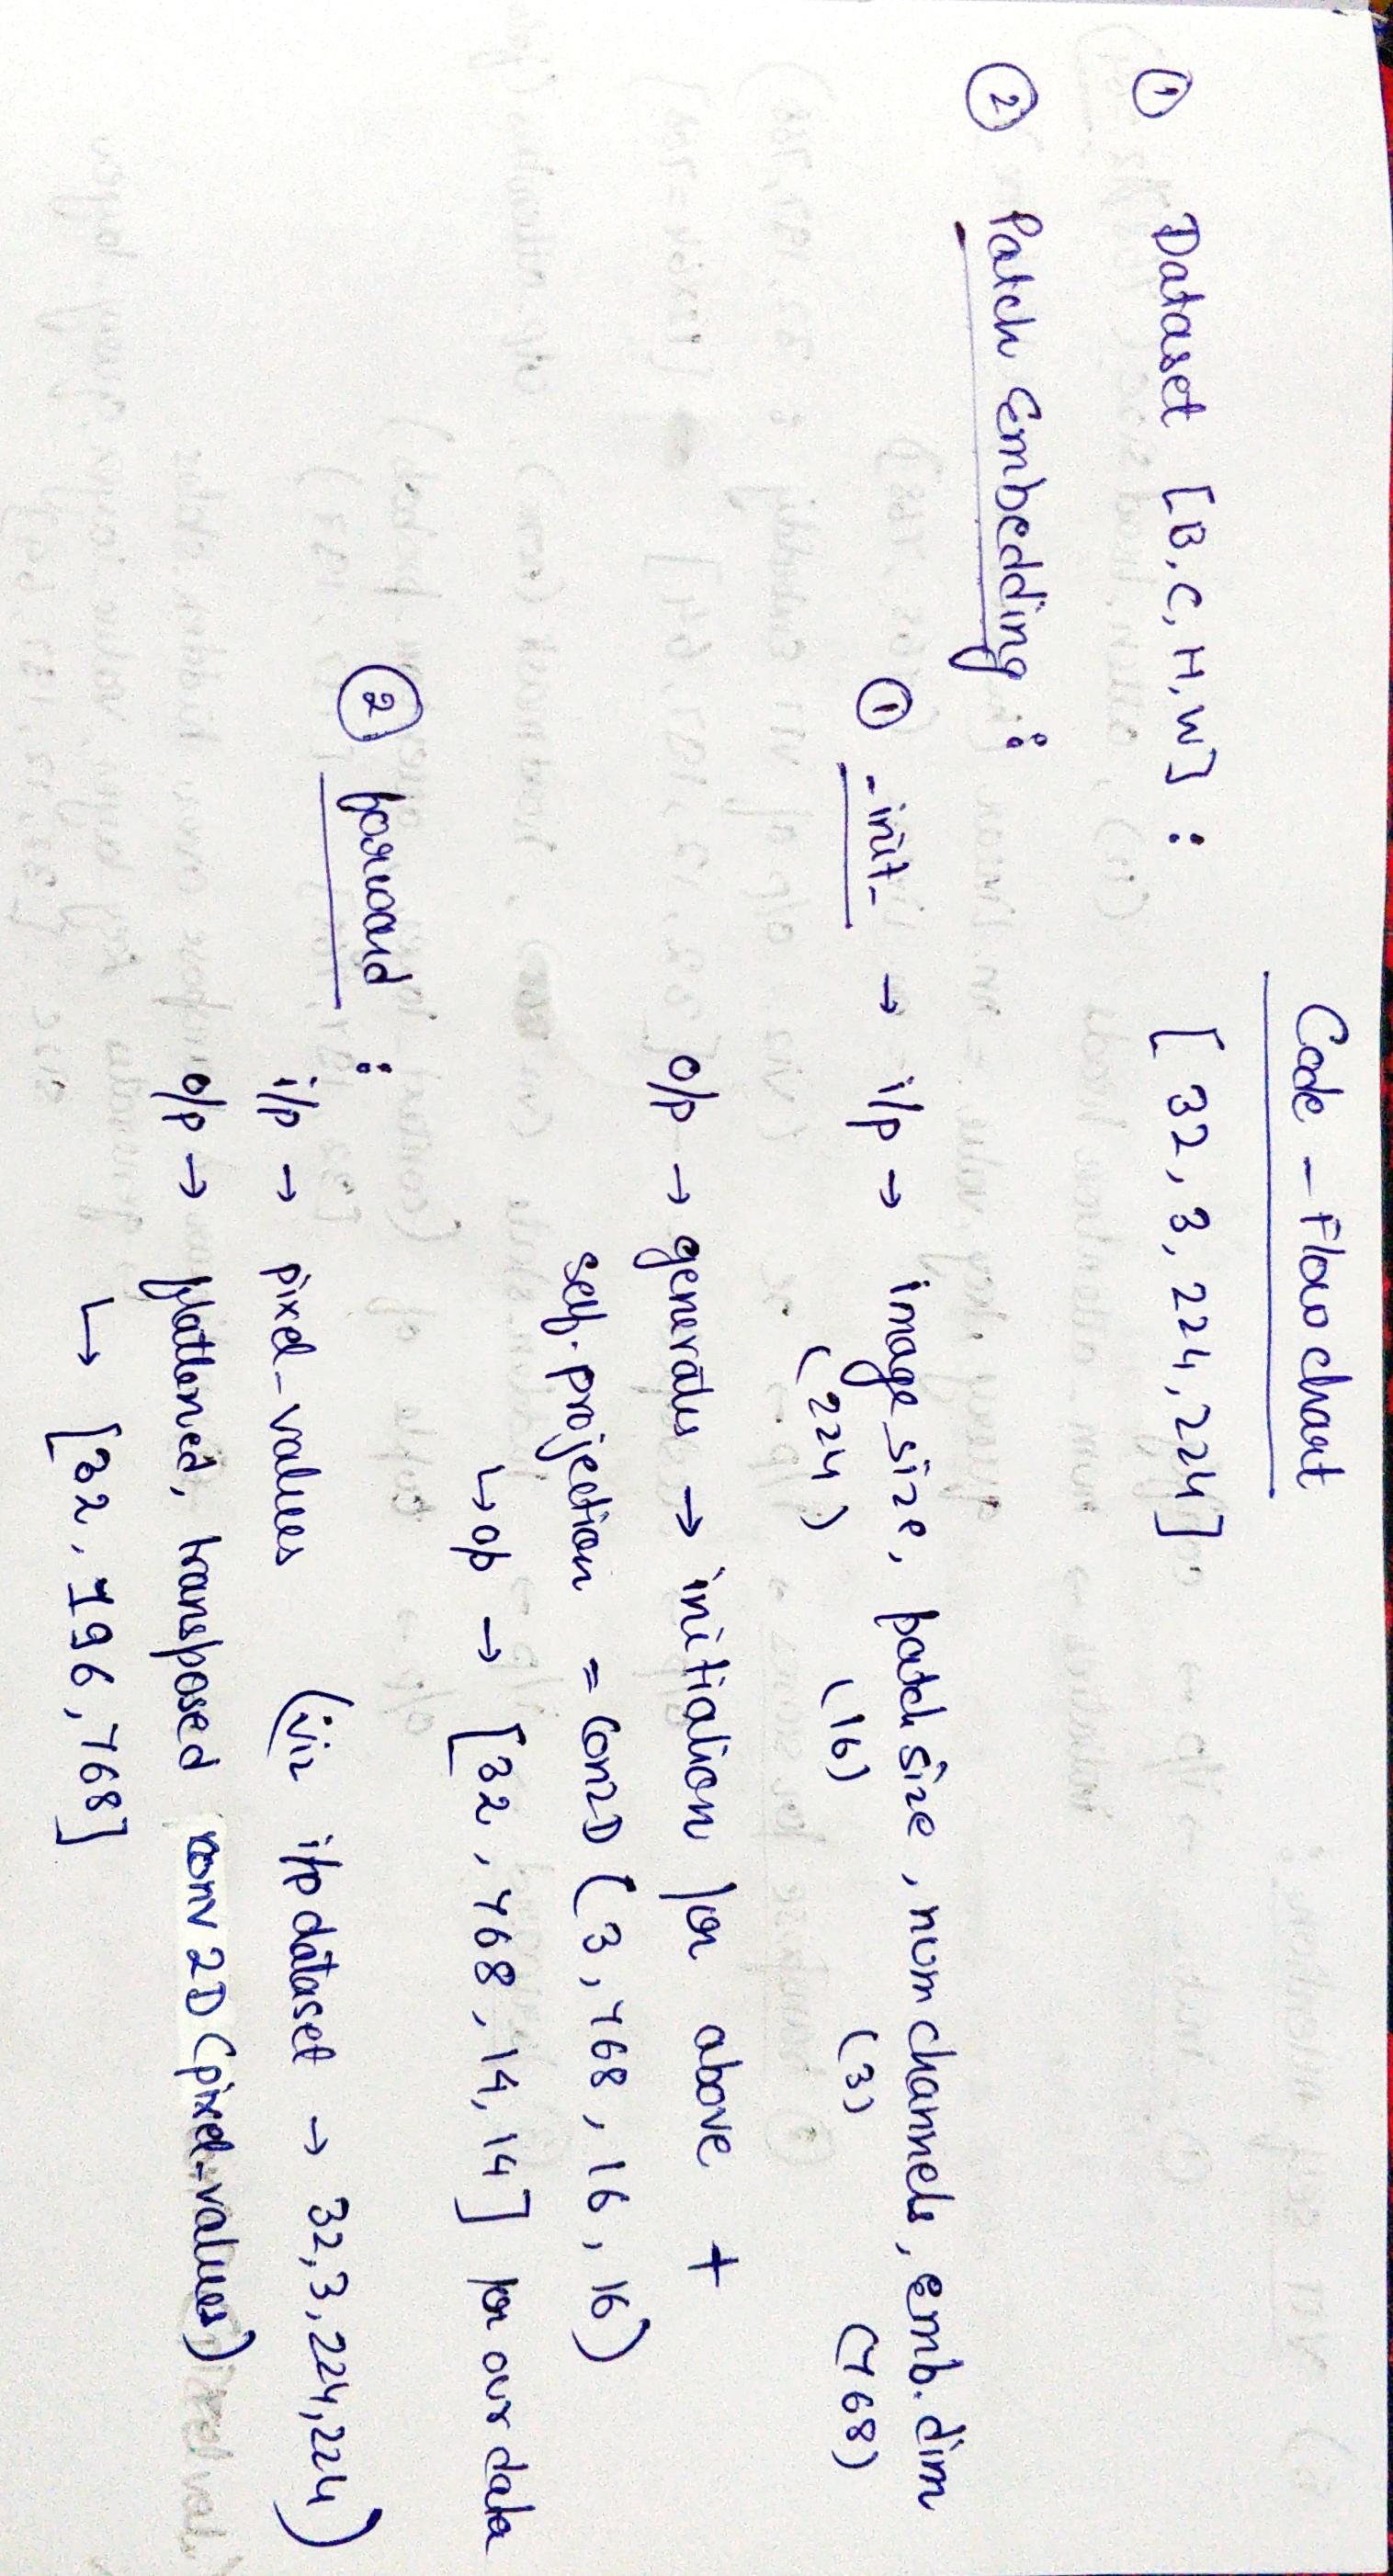 Code - Flow chart
① Dataset [B, C, H, W] : [32, 3, 224, 224]
② Patch Embedding :
① -init- → i/p → image_size, patch size, num channels, emb. dim
(224) (16) (3) (768)
o/p → generates → initiation for above +
self. projection = Con2D (3, 768, 16, 16)
↳ op → [32, 768, 14, 14] for our data
② forward :
i/p → pixel-values (viz i/p dataset → 32, 3, 224, 224)
o/p → flattened, transposed conv 2D (pixel-values)
↳ [32, 196, 768]